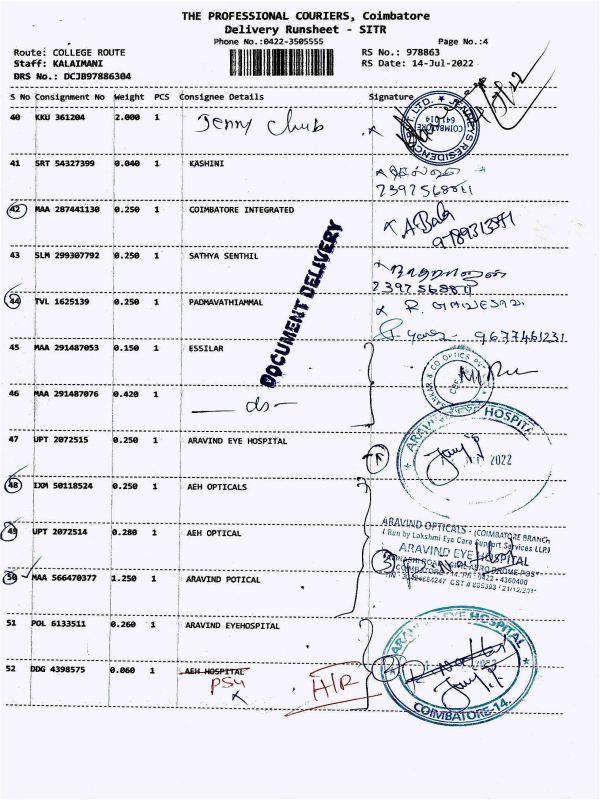 THE PROFESSIONAL COURIERS, Coimbatore
Delivery Runsheet - SITR
Phone No.:0422-3505555 Page No.:4
Route: COLLEGE ROUTE RS No.: 978863
Staff: KALAIMANI RS Date: 14-Jul-2022
DRS No.: DCJB97886304
S No Consignment No Weight PCS Consignee Details Signature
40 KKU 361204 2.000 1 Jenny Club
JENNEYS RESIDENCY PVT. LTD. COIMBATORE 641 014
41 SRT 54327399 0.040 1 KASHINI
42 MAA 287441130 0.250 1 COIMBATORE INTEGRATED A Bala
43 SLM 299307792 0.250 1 SATHYA SENTHIL
44 TVL 1625139 0.250 1 PADMAVATHIAMMAL
9677461231
DOCUMENT DELIVERY
45 MAA 291487053 0.150 1 ESSILAR
46 MAA 291487076 0.420 1 — do —
47 UPT 2072515 0.250 1 ARAVIND EYE HOSPITAL
ARAVIND EYE HOSPITAL
2022
48 IXM 50118524 0.250 1 AEH OPTICALS
49 UPT 2072514 0.280 1 AEH OPTICAL
ARAVIND OPTICALS - (COIMBATORE BRANCH)
( Run by Lakshmi Eye Care Support Services LLP)
ARAVIND EYE HOSPITAL
50 MAA 566470377 1.250 1 ARAVIND POTICAL 3
COIMBATORE - 14. PH : 0422 - 4360400
51 POL 6133511 0.260 1 ARAVIND EYEHOSPITAL
ARAVIND EYE HOSPITAL
52 DDG 4398575 0.060 1 AEH HOSPITAL 2
PSG H/R
COIMBATORE-14.